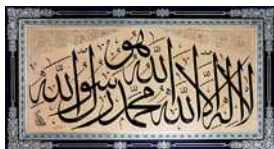 هو
لا إله إلا الله محمد رسول الله